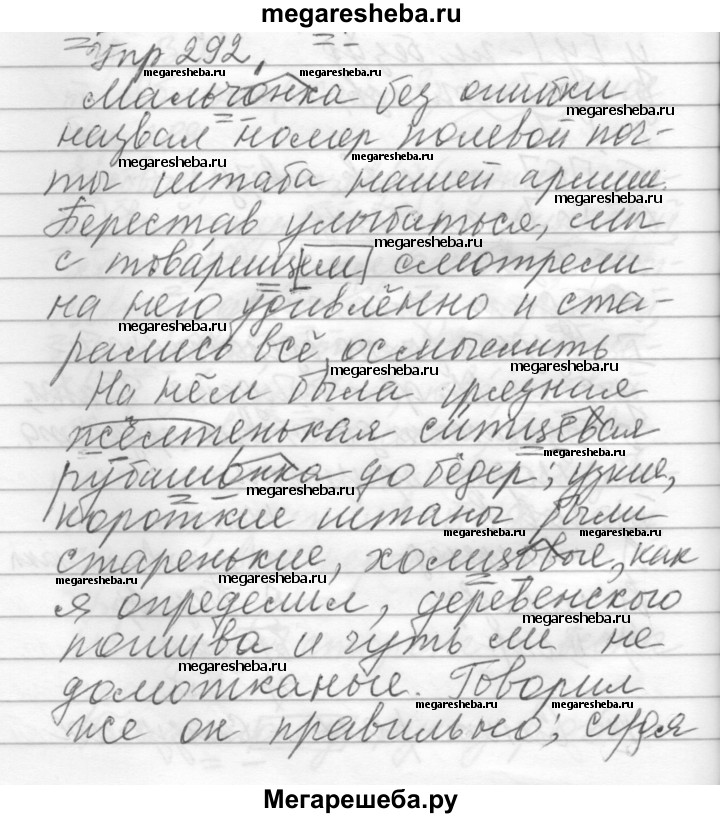 megaresheba.ru
Упр 292.
megaresheba.ru megaresheba.ru
Мальчонка без ошибки
megaresheba.ru
назвал номер полевой поч-
megaresheba.ru
ты штаба нашей армии.
Перестав улыбаться, мы
megaresheba.ru
с товарищем смотрели
megaresheba.ru
на него удивлённо и ста-
megaresheba.ru
рались всё осмыслить
megaresheba.ru
На нём была грязная
жёлтенькая ситцевая
megaresheba.ru
рубашонка до бёдер; узкие,
megaresheba.ru
короткие штаны были
megaresheba.ru
старенькие, холщовые, как
megaresheba.ru megaresheba.ru
я определил, деревенского
пошива и чуть ли не
megaresheba.ru
домотканые. Говорил
megaresheba.ru megaresheba.ru
же он правильно; судя
Мегарешеба.ру